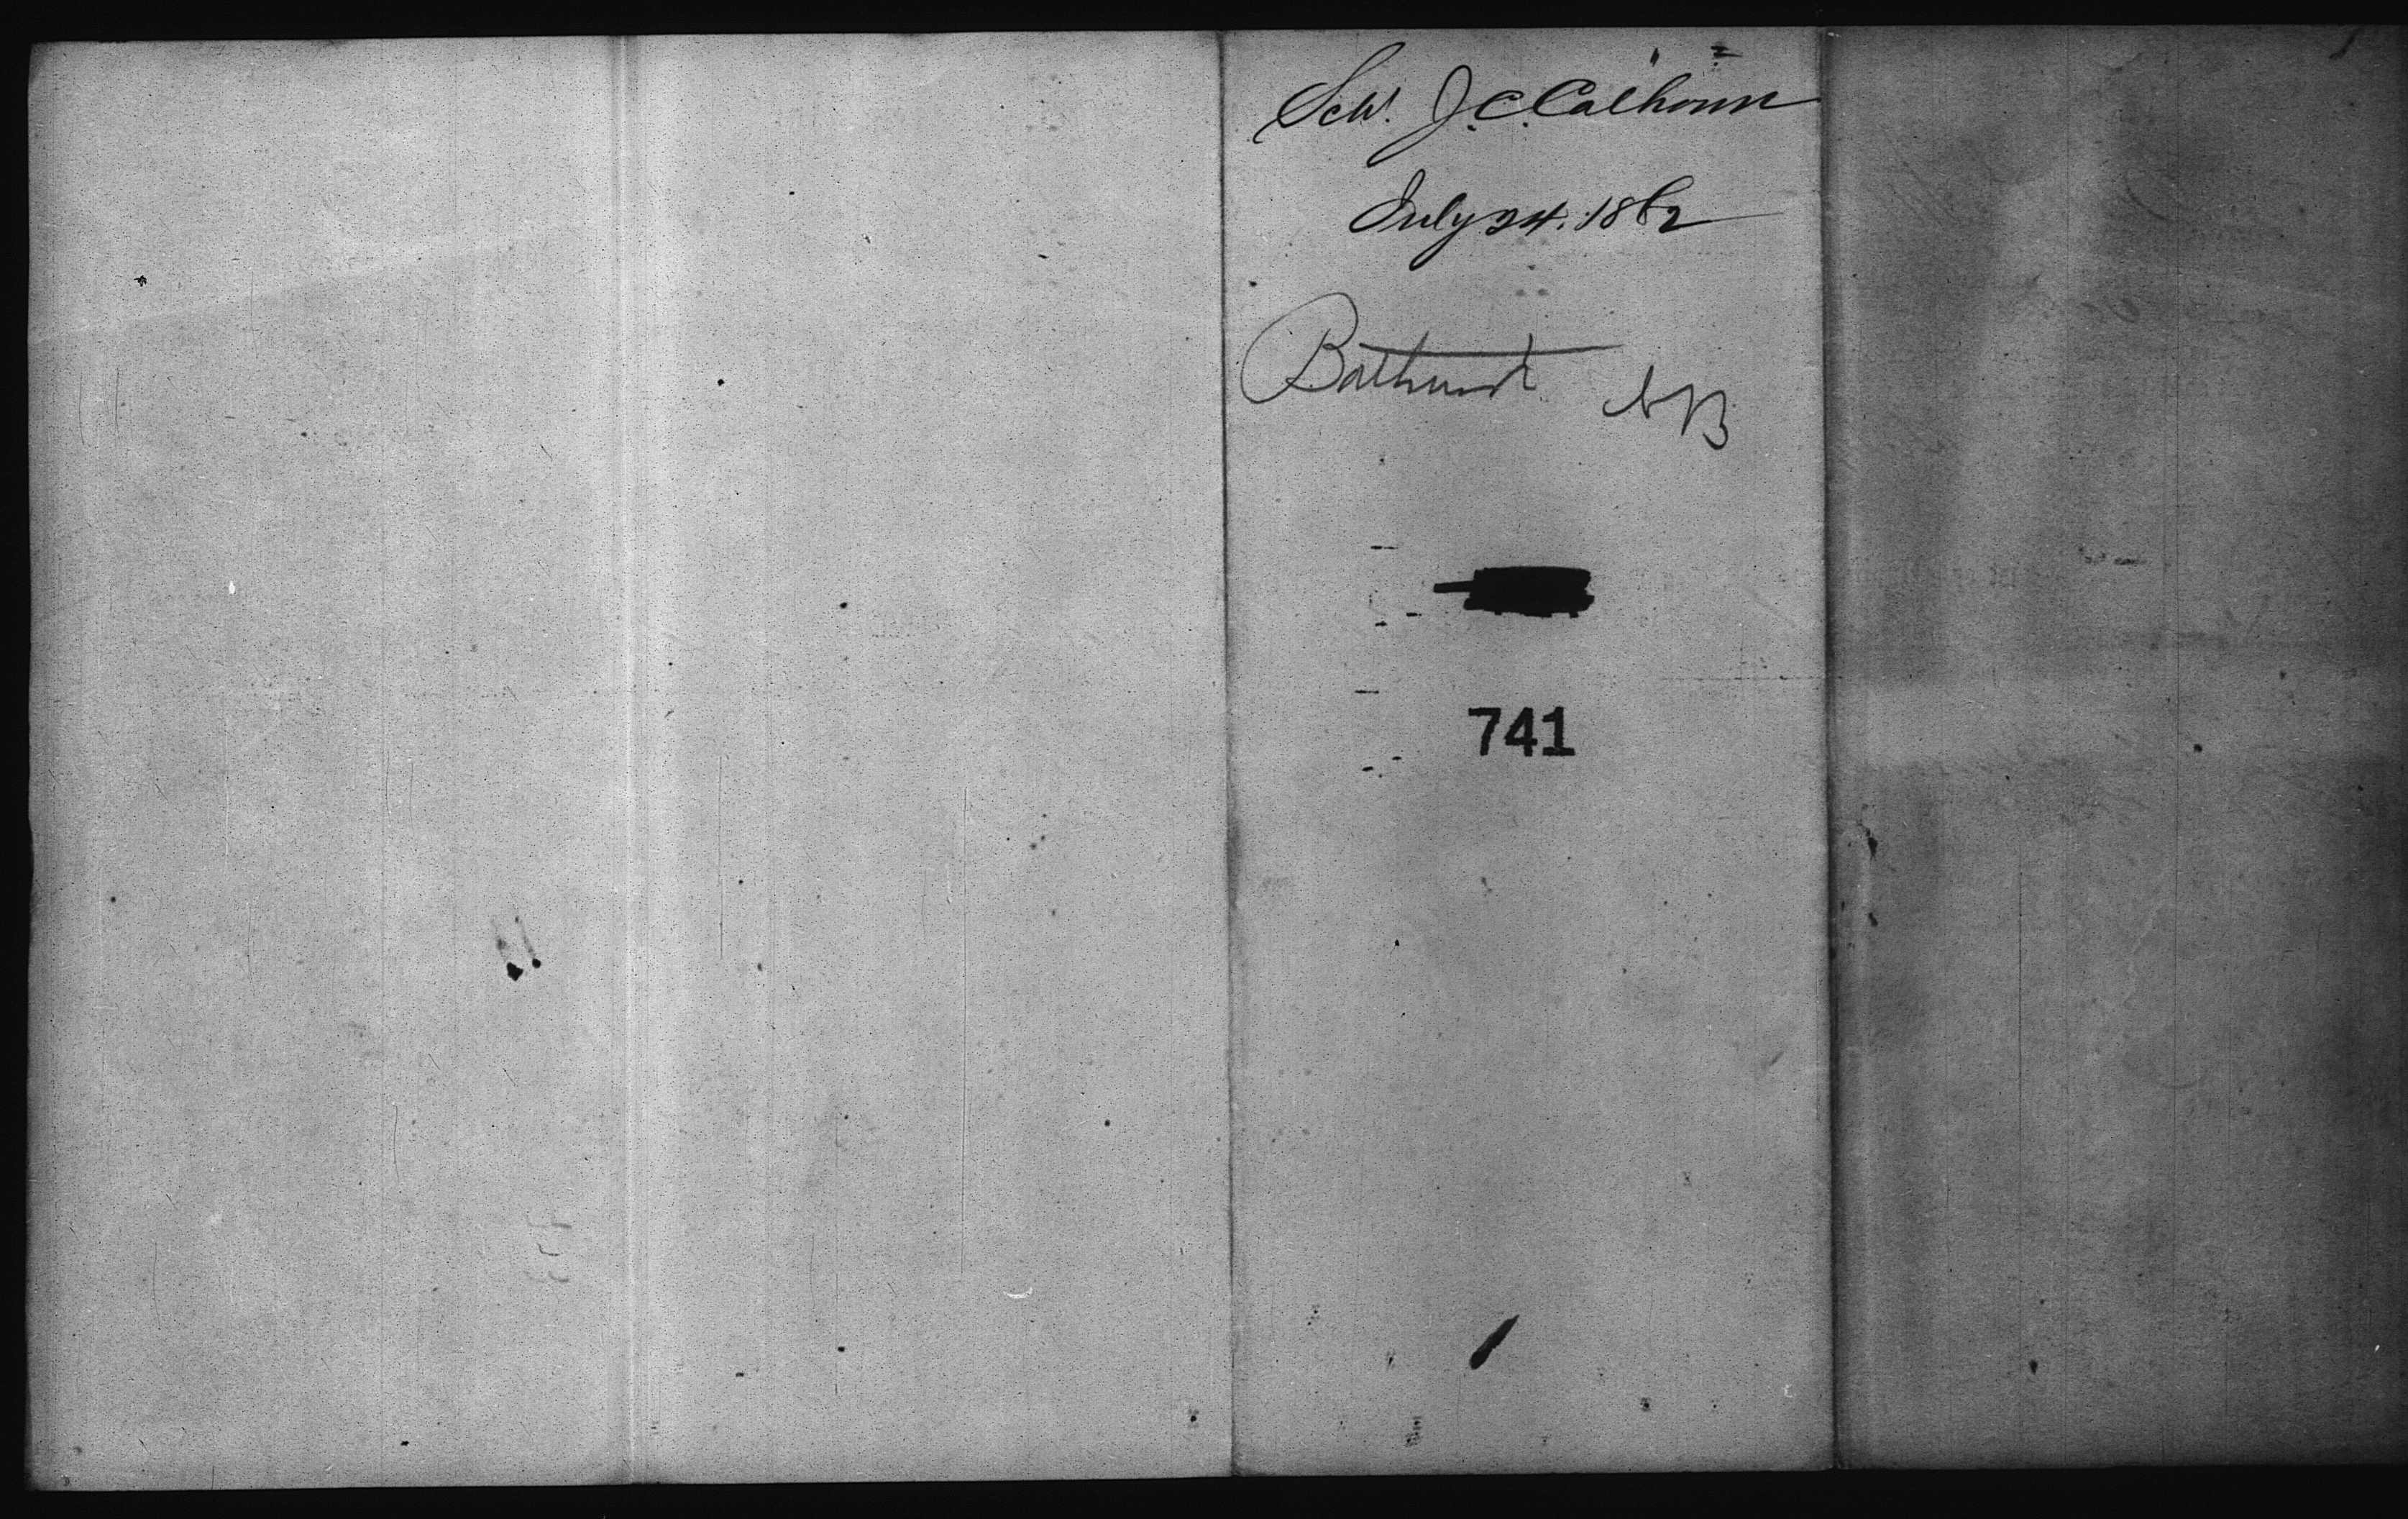 Schr. J.C. Calhoun
July 24. 1862
Bathurst NB
741